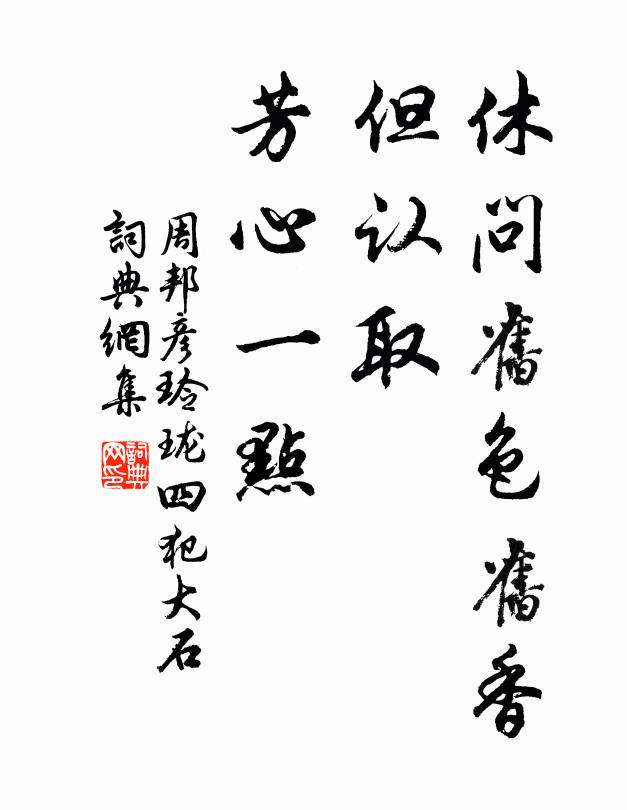 休問舊色舊香
但认取
芳心一點
周邦彥玲珑四犯大石
詞典網集
詞典网印